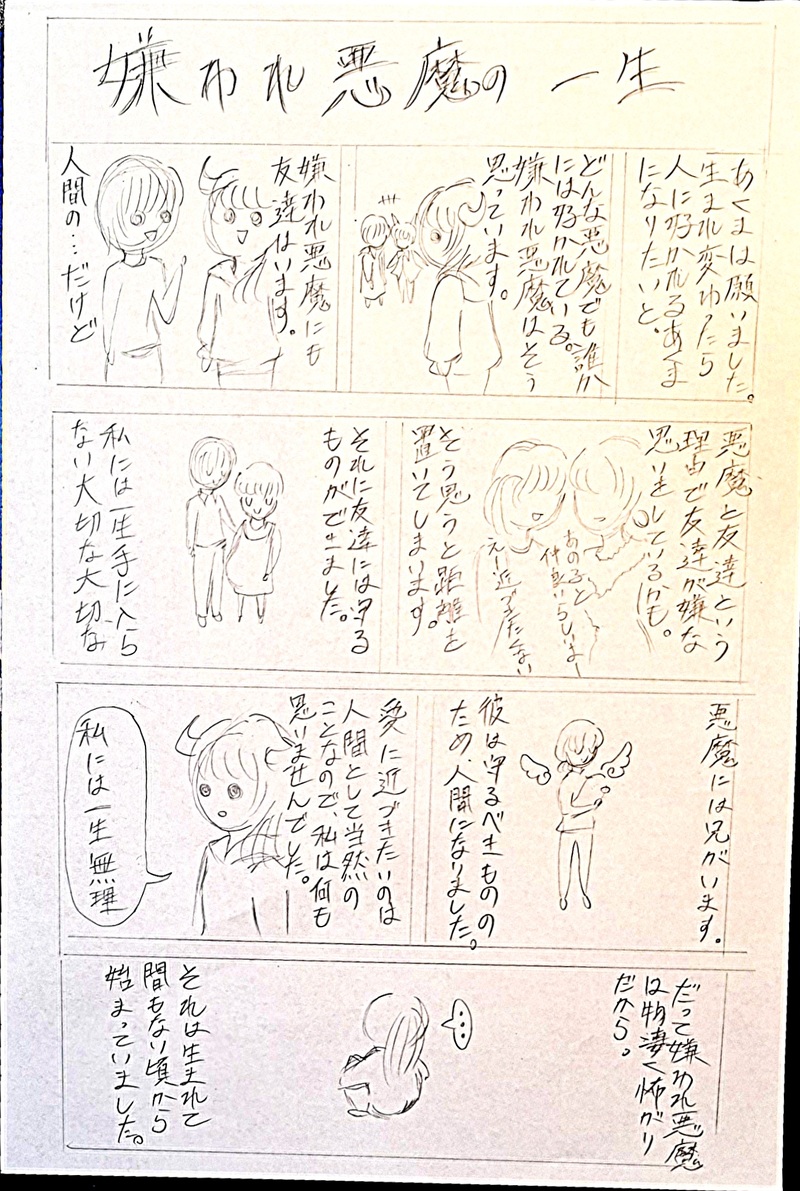 嫌われ悪魔の一生
あくまは願いました。
生まれ変わったら
人に好かれるあくま
になりたいと、
どんな悪魔でも誰か
には好かれている。
嫌われ悪魔はそう
思っています。
嫌われ悪魔にも
友達はいます。
人間の…だけど
悪魔と友達という
理由で友達が嫌な
思いをしているかも。
あの子と
仲良いらしいよー
えー近づきたくない
そう思うと距離を
置いてしまいます。
それに友達には守る
ものができました。
私には一生手に入ら
ない大切な大切な
悪魔には兄がいます。
彼は守るべきものの
ため、人間になりました。
愛に近づきたいのは
人間として当然の
ことなので、私は何も
思いませんでした。
私には一生無理
だって嫌われ悪魔
は物凄く怖がり
だから。
…
それは生まれて
間もない頃から
始まっていました。